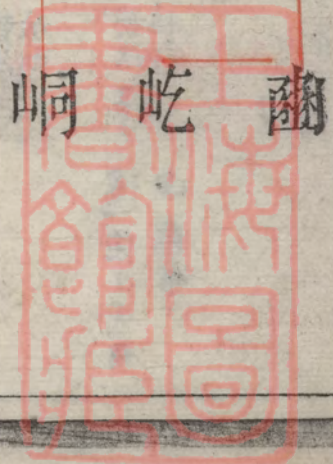 豳
屹
峒
上海圖
書館藏